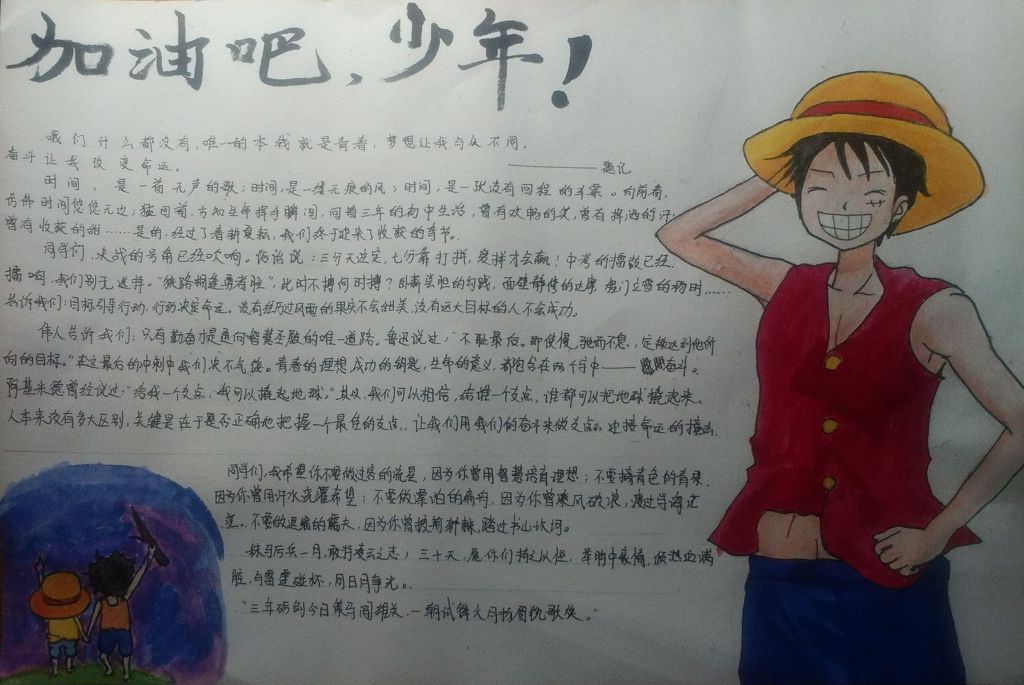 加油吧，少年！
我们什么都没有，唯一的本钱就是青春，梦想让我与众不同，
奋斗让我改变命运。
————题记
时间，是一首无声的歌；时间，是一缕无痕的风；时间，是一张没有回程的车票。向前看，
时间悠悠无边；猛回首，方知生命挥手瞬间，回首三年的初中生活，曾有欢畅的笑，曾有挥洒的汗
曾有收获的甜……是的，经过了春耕夏耘，我们终于迎来了收获的季节。
同学们，决战的号角已经吹响。俗话说：三分天注定，七分靠打拼，爱拼才会赢！中考的擂鼓已经
擂响，我们别无选择。“狭路相逢勇者胜”，此时不搏何时搏？卧薪尝胆的勾践，面壁静修的达摩，程门立雪的杨时……
告诉我们：目标引导行动，行动决定命运。没有经历过风雨的果实不会甜美，没有远大目标的人不会成功。
伟人告诉我们：只有勤奋才是通向智慧圣殿的唯一道路。鲁迅说过：“不耻最后。即使慢，驰而不息，定能达到他所
向的目标。”在这最后的冲刺中我们决不气馁。青春的理想，成功的钥匙，生命的意义，都包含在两个字中——奋斗。
阿基米德曾经说过：“给我一个支点，我可以撬起地球。”其实，我们可以相信，给谁一个支点，谁都可以把地球撬起来。
人本来没有多大区别，关键是在于是否正确地把握一个最佳的支点。让我们用我们的奋斗来做支点，迎接命运的撞击。
同学们，我希望你不要做过客的流星，因为你曾用智慧培育理想；不要摘青色的苹果，
因为你曾用汗水浇灌希望；不要做漂泊的扁舟，因为你曾乘风破浪，渡过学海汇
。不要做退缩的懦夫，因为你曾披荆斩棘，踏过书山坎坷。
秣马厉兵一月，敢持凌云之志；三十天，愿你们持之以恒，革命中豪情，倾热血满
腔，与雷霆碰杯，同日月争光。
“三年砺剑今日策马闯雄关，一朝试锋六月扬眉悦歌欢。”